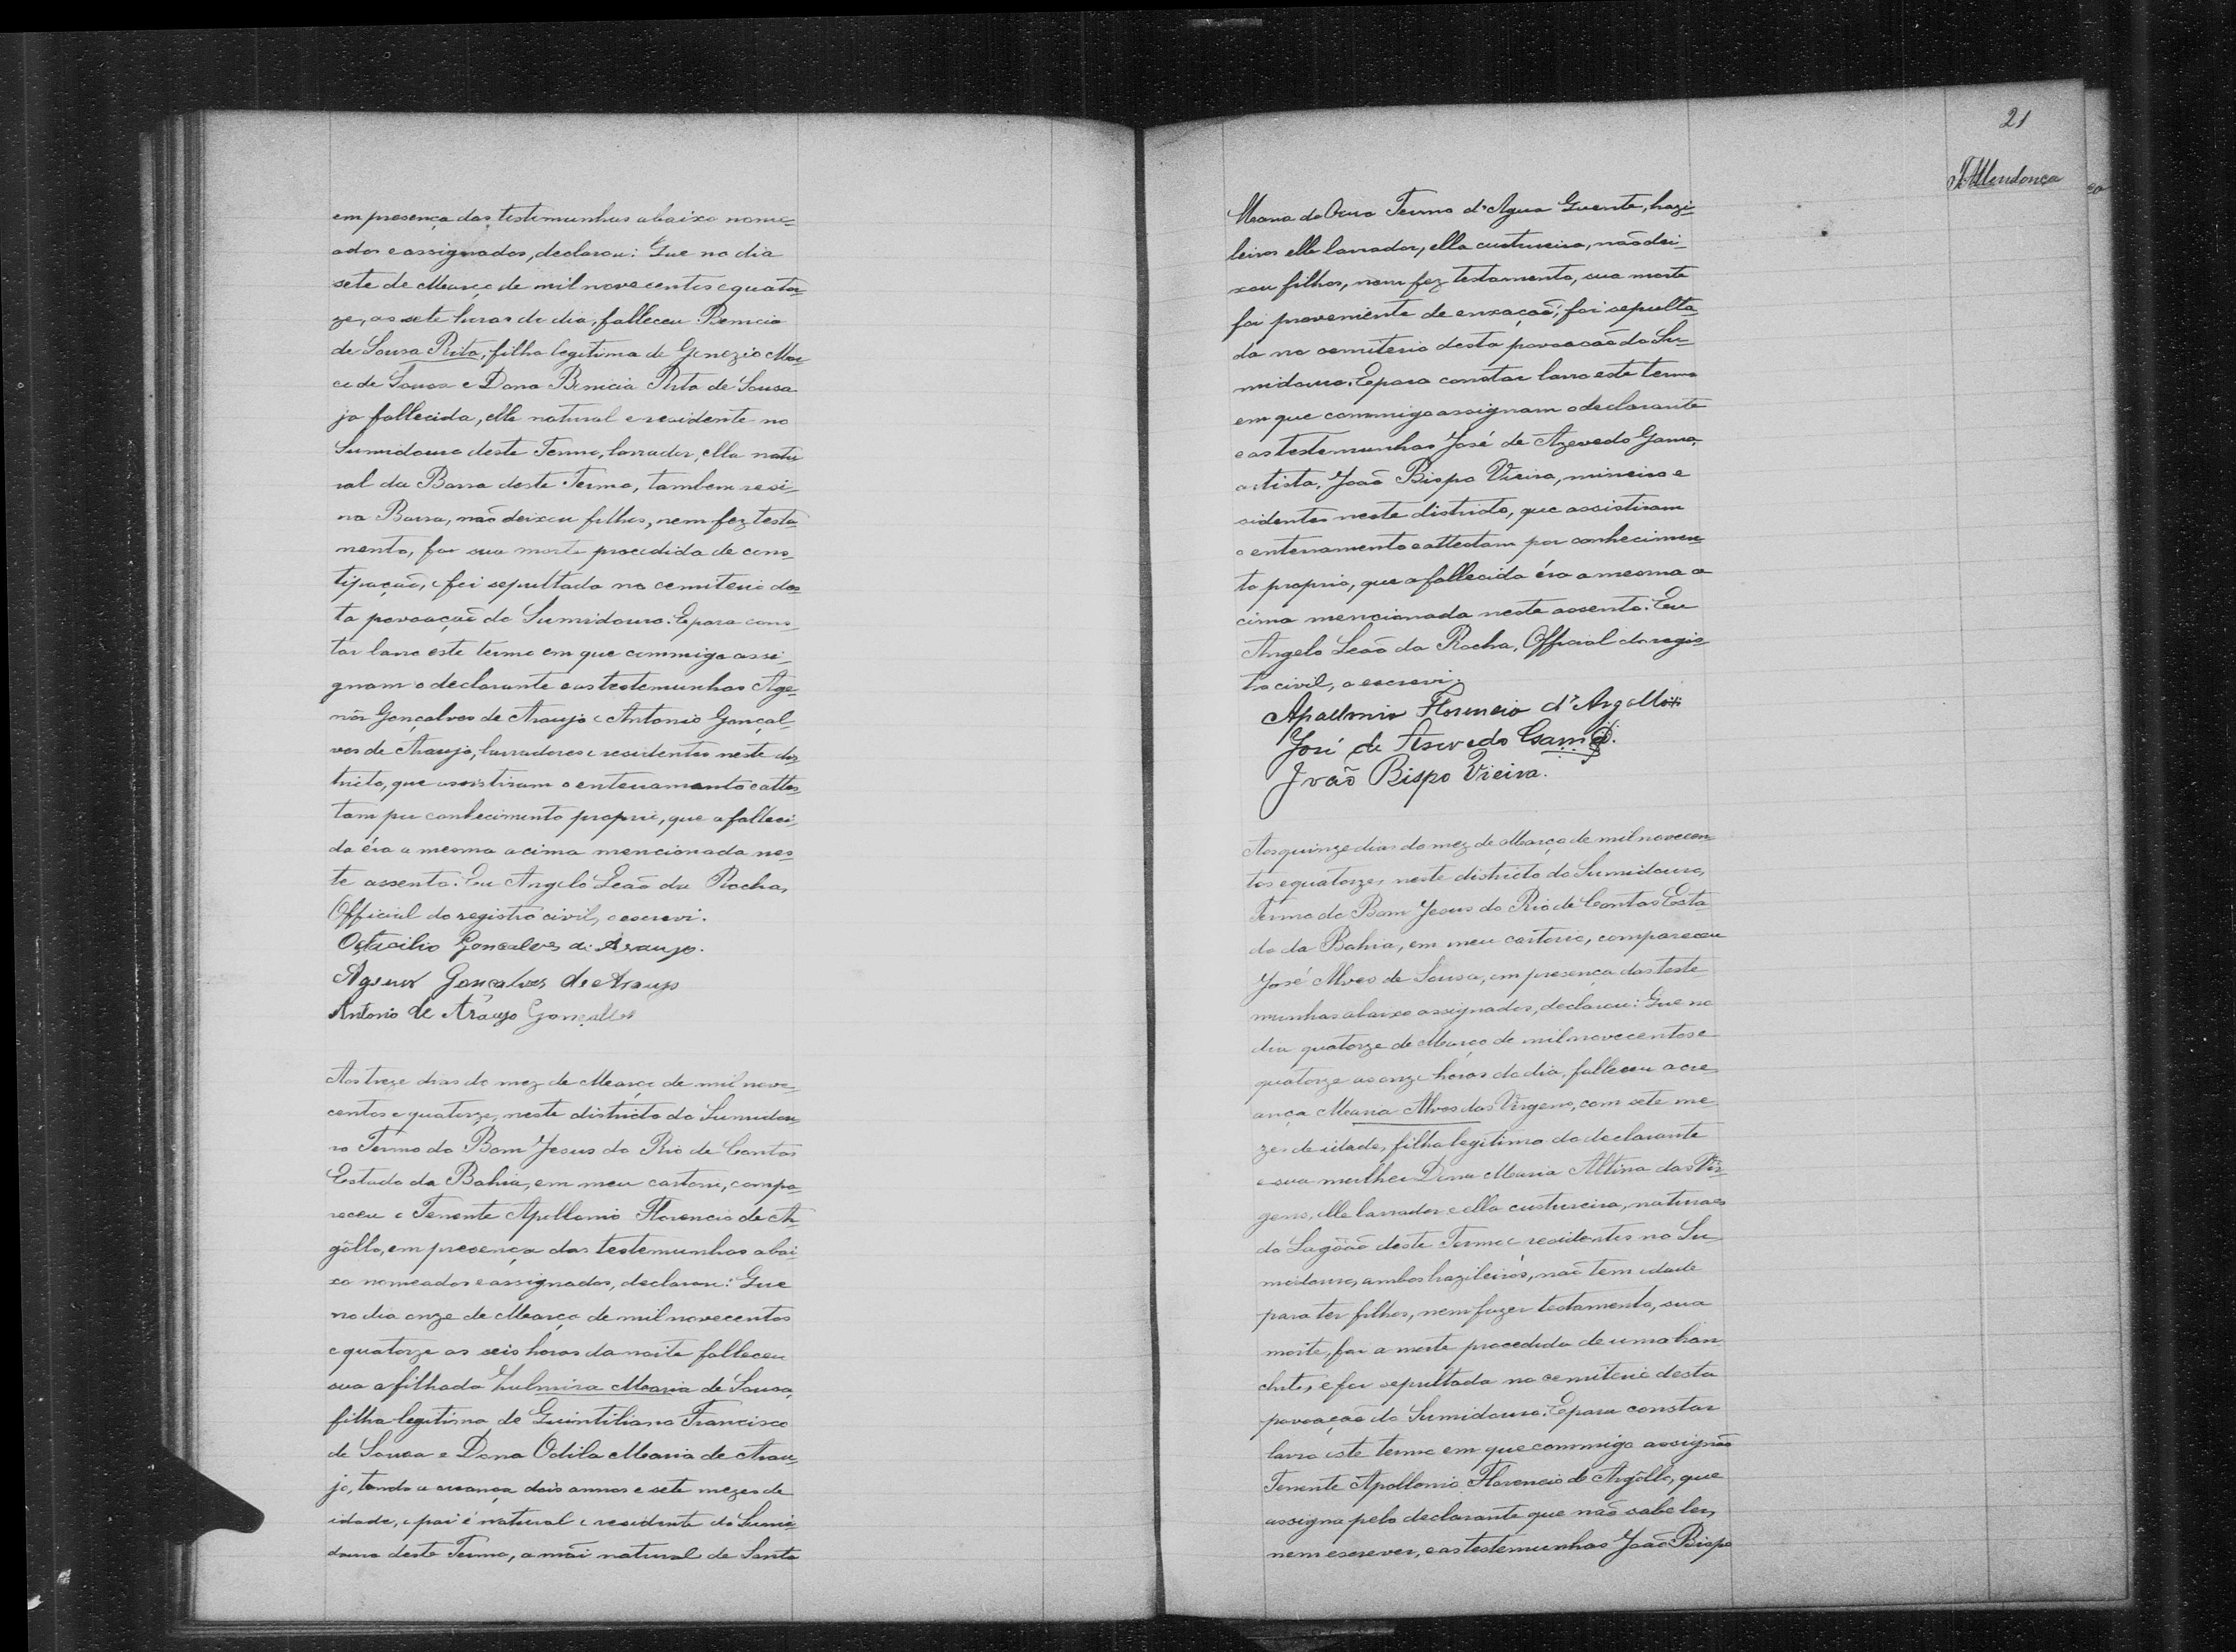 em presença das testemunhas abaixo nome-
ados e assignados, declarou: Que no dia
sete de Março de mil novecentos e quator-
ze, as sete horas do dia, falleceu Benicia
de Sousa Rita, filha legitima de Genezio
de Sousa e Dona Benicia Rita de Sousa
ja fallecida, elle natural e residente no
Sumidouro deste Termo, lavrador, ella natu-
ral da Barra deste Termo, tambem resi-
na Barra, não deixou filhos, nem fez testa-
mento, foi sua morte procedida de cons-
tipação, e foi sepultada no cemiterio des-
ta povoação do Sumidouro. E para cons-
tar lavro este termo em que commigo assi-
gnam o declarante e as testemunhas Age-
nôr Gonçalves de Araujo e Antonio Gonçal-
ves de Araujo, lavradores e residentes neste dis-
tricto, que assistiram o enterramento e attes-
tam por conhecimento proprio, que a falleci-
da éra a mesma acima mencionada nes-
te assento. Eu Angelo Leão da Rocha,
Official do registro civil, o escrevi.
Octacilio Gonçalves de Araujo.
Agenor Gonçalves de Araujo
Antonio de Araujo Gonçalves
Aos treze dias do mez de Março de mil nove-
centos e quatorze, neste districto do Sumidou-
ro Termo do Bom Jesus do Rio de Contas
Estado da Bahia, em meu cartorio, compa-
receu o Tenente Apollonio Florencio de Ar-
gôllo, em presença das testemunhas abai-
xo nomeados e assignados, declarou: Que
no dia onze de Março de mil novecentos
e quatorze as seis horas da noite falleceu
sua afilhada Zulmira Maria de Sousa,
filha legitima de Quintiliano Francisco
de Sousa e Dona Odila Maria de Arau-
jo, tendo a creança dois annos e sete mezes de
idade, o pai é natural e residente do Sumi-
douro deste Termo, a mãi natural de Santa
21
Mendonça
Maria do Ouro Termo d'Agua Quente, brazi-
leiros elle lavrador, ella custureira, não dei-
xou filhos, nem fez testamento, sua morte
foi proveniente de enxação; foi sepulta-
da no cemiterio desta povoação do Su-
midouro. E para constar lavro este termo
em que commigo assignam o declarante
e as testemunhas José de Azevedo Gama,
artista, João Bispo Vieira, mineiro e
sidentes neste districto, que assistiram
o enterramento e attestam por conhecimen-
to proprio, que a fallecida éra a mesma a
cima mencionada neste assento. Eu
Angelo Leão da Rocha, Official do regis-
tro civil, o escrevi.
Apollonio Florencio d'Argollo
José de Asevedo Gama.
João Bispo Vieira.
Aos quinze dias do mez de Março de mil novecen-
tos e quatorze, neste districto do Sumidouro,
Termo do Bom Jesus do Rio de Contas Esta-
do da Bahia, em meu cartorio, compareceu
José Alves de Sousa, em presença das teste
munhas abaixo assignados, declarou: Que no
dia quatorze de Março de mil novecentos e
quatorze as onze horas do dia, falleceu a cre-
ança Maria Alves das Virgens, com sete me-
zes de idade, filha legitima do declarante
e sua mulher Dona Maria Altina das Vir-
gens, elle lavrador e ella custureira, naturaes
do Lagôão deste Termo e residentes no Su-
midouro, ambos brazileiros, não tem idade
para ter filhos, nem fazer testamento, sua
morte, foi a morte procedida de uma bron-
chite, e foi sepultada no cemiterio desta
povoação do Sumidouro. E para constar
lavro este termo em que commigo assigna o
Tenente Apollonio Florencio de Argôllo, que
assigna pelo declarante que não sabe ler,
nem escrever, e as testemunhas João Bispo